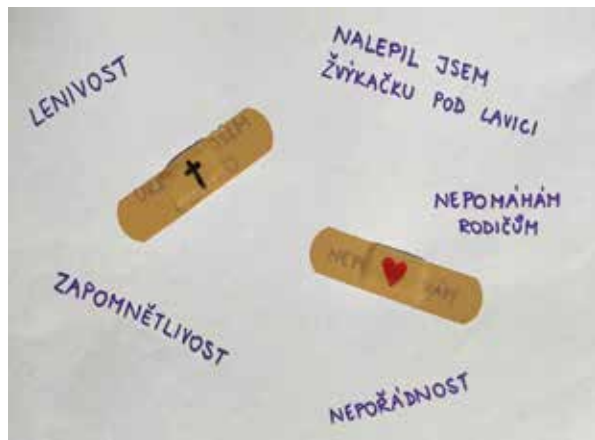 LENIVOST
NALEPIL JSEM
ŽVÝKAČKU POD LAVICI
JSEM
NEPOMÁHÁM
RODIČŮM
ZAPOMNĚTLIVOST
NEPOŘÁDNOST